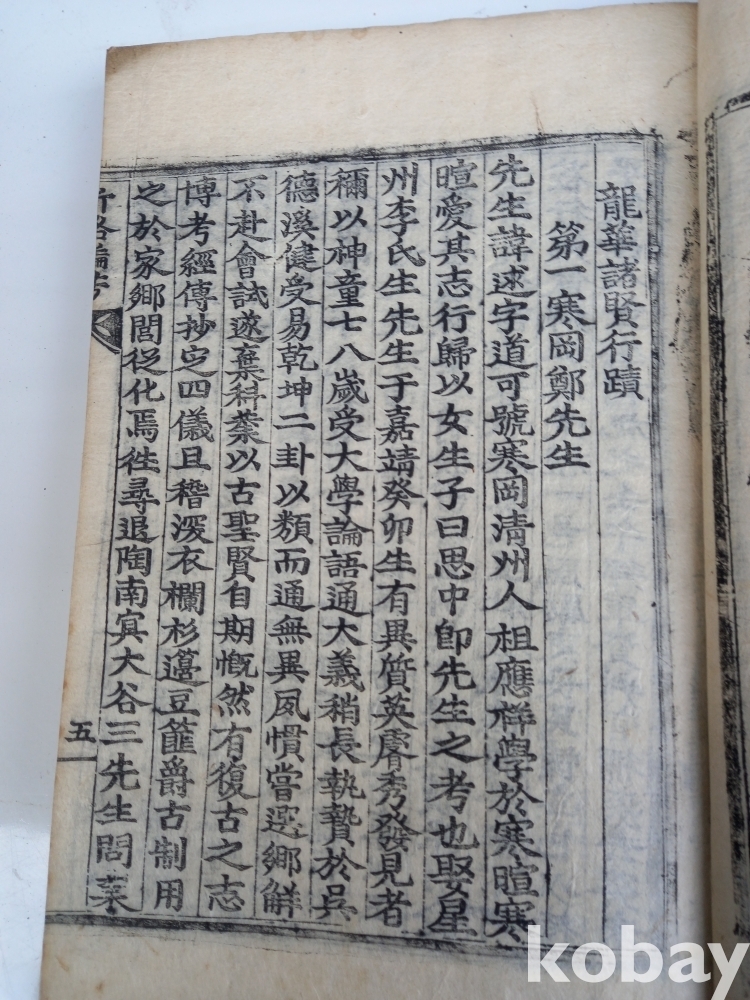 龍華諸賢行蹟
第一寒岡鄭先生
先生諱逑字道可號寒岡清州人祖應祥學於寒暄寒
暄愛其志行歸以女生子曰思中卽先生之考也娶星
州李氏生先生于嘉靖癸卯生有異質英睿秀發見者
稱以神童七八歲受大學論語通大義稍長執贄於吳
德溪健受易乾坤二卦以類而通無異夙慣嘗選鄉解
不赴會試遂棄科業以古聖賢自期慨然有復古之志
博考經傳抄定四儀且稽深衣襴衫籩豆簠爵古制用
之於家鄉閭從化焉徃尋退陶南冥大谷三先生問業
五
kobay